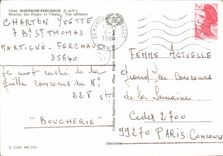 35640 MARTIGNÉ-FERCHAUD (I.-et-V.)
CHARLON YVETTE
7 Bd ST THOMAS
MARTIGNÉ-FERCHAUD
35640
le mot caché de
la Grille concours du
N° 228 est
"BOUCHERIE"
FEMME ACTUELLE
Grand Jeu Concours
de la Semaine
Cedex 2700
99270 PARIS CONCOURS